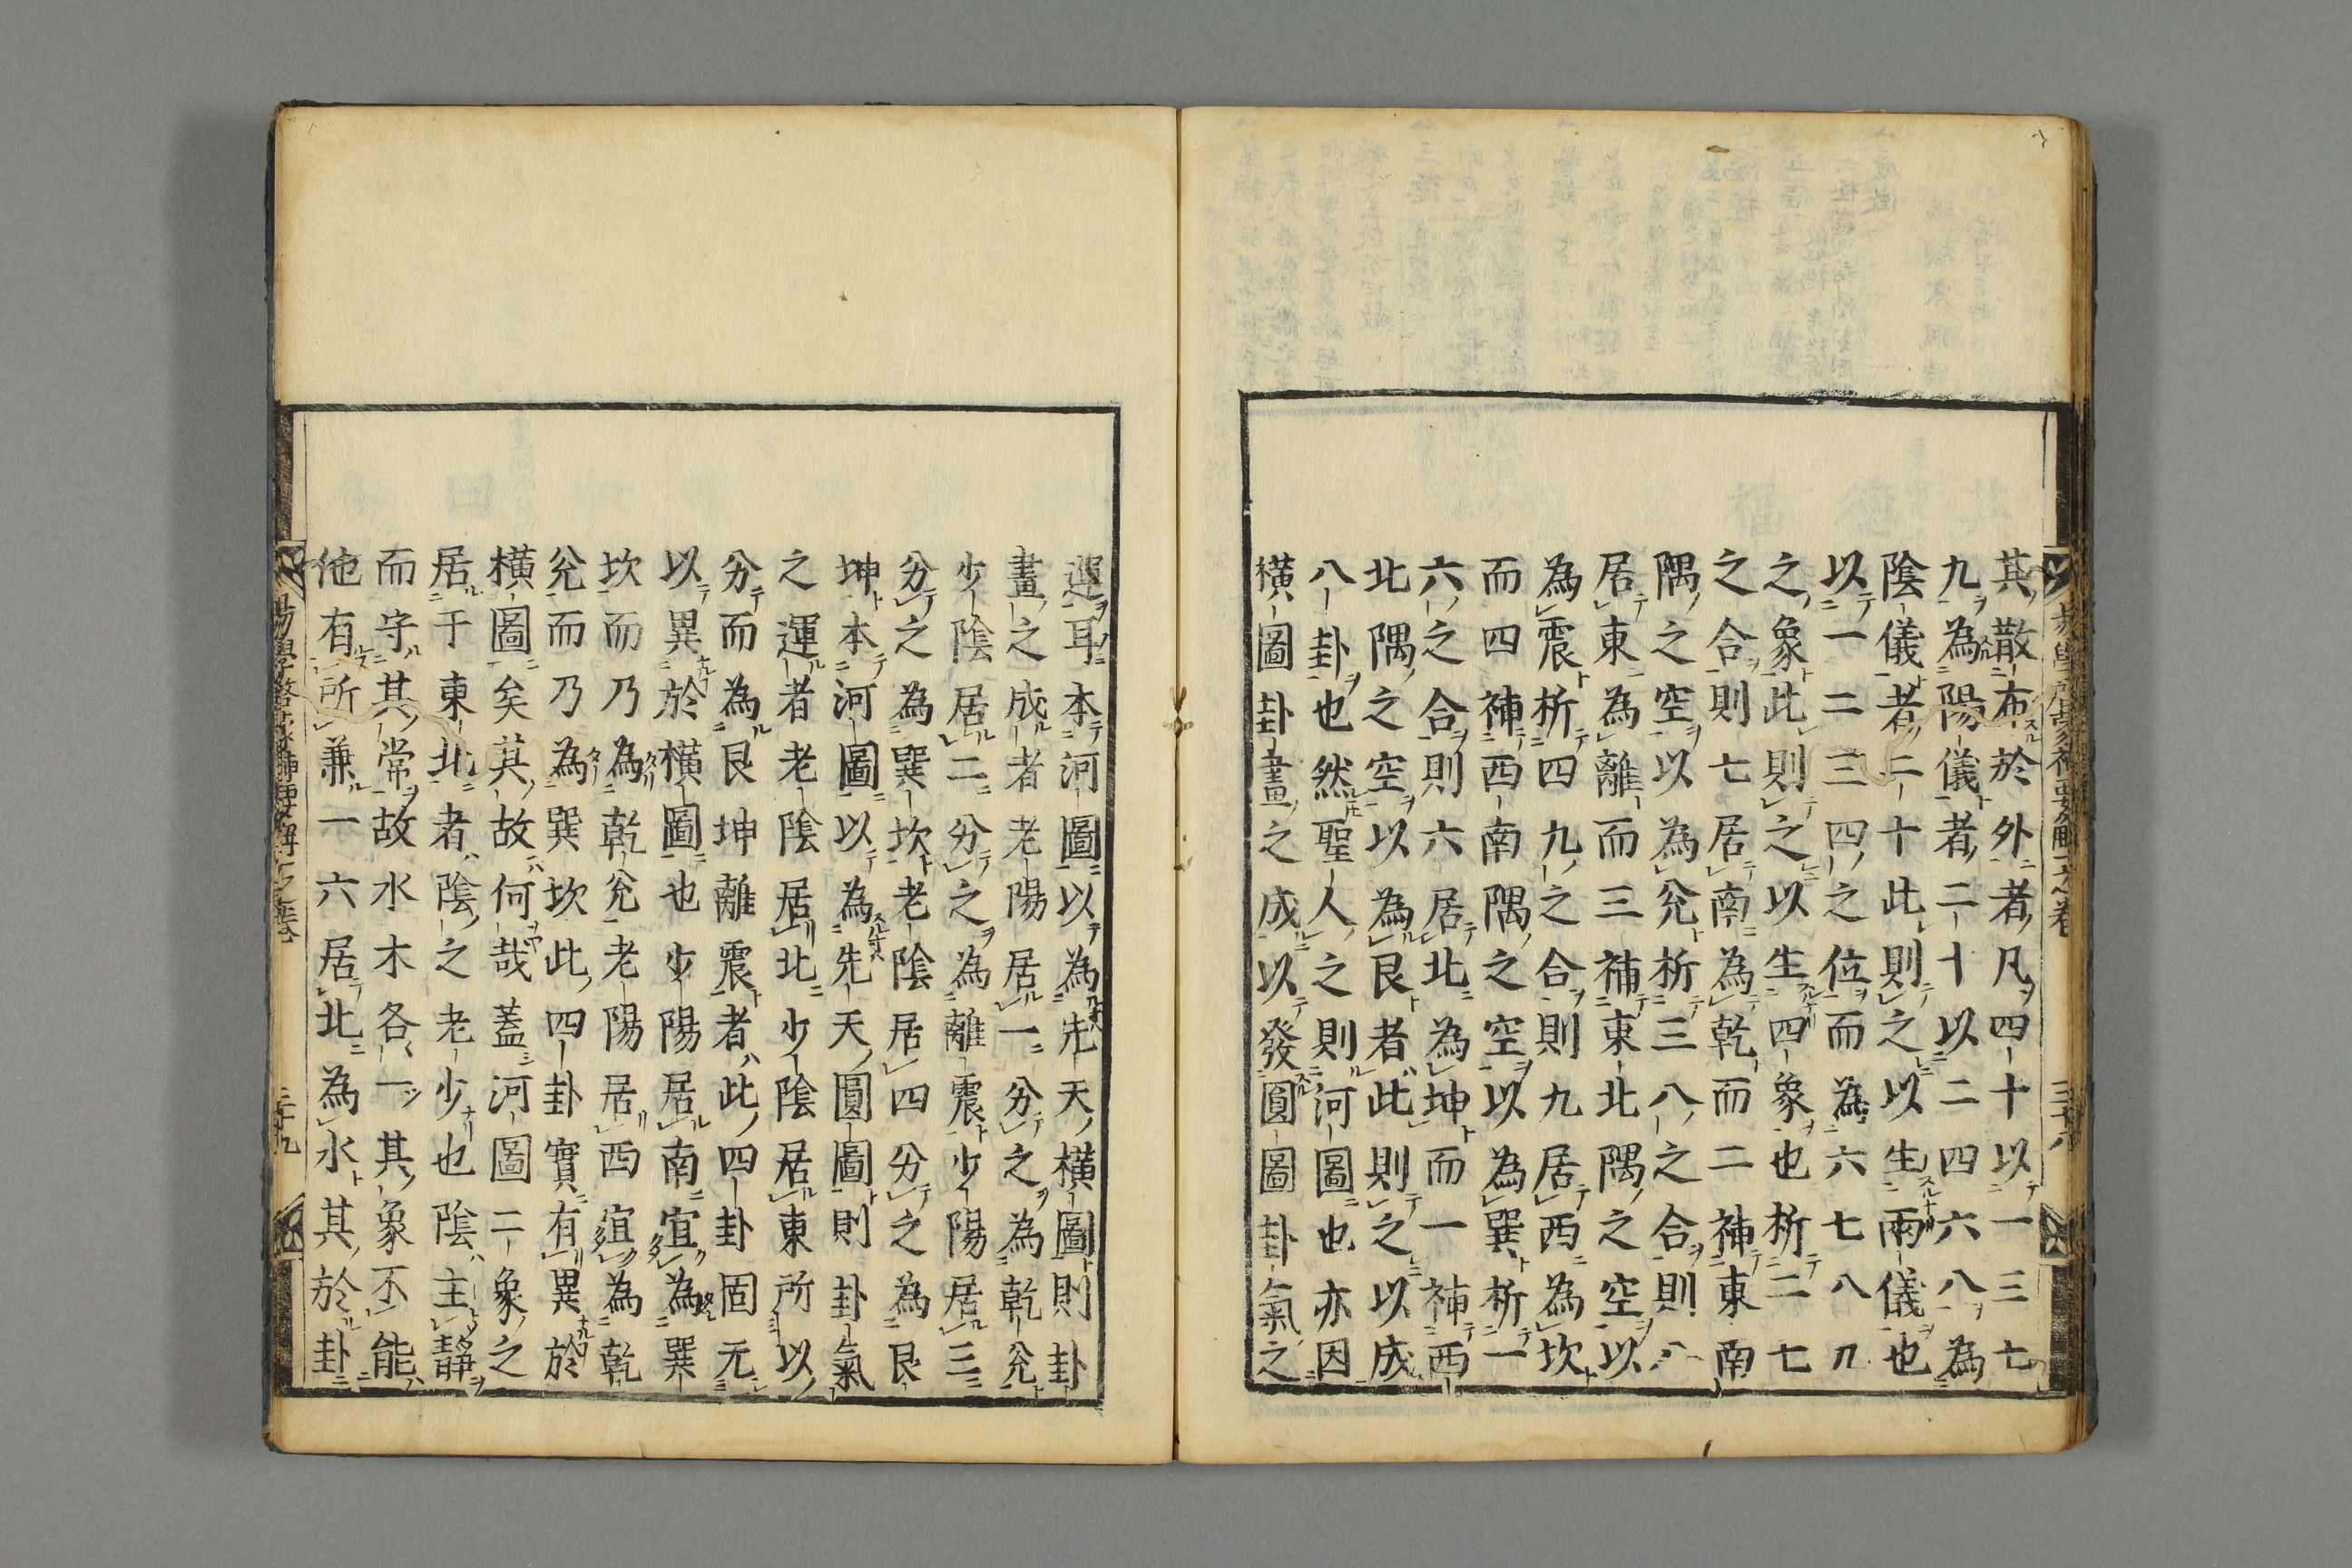 其散布於外者凡四十以一三七
九為陽儀者二十以二四六八為
陰儀者二十此則之以生兩儀也
以一二三四之位而為六七八九
之象此則之以生四象也析二七
之合則七居南為乾而二補東南
隅之空以為兌析三八之合則八
居東為離而三補東北隅之空以
為震析四九之合則九居西為坎
而四補西南隅之空以為巽析一
六之合則六居北為坤而一補西
北隅之空以為艮者此則之以成
八卦也然聖人之則河圖也亦因
橫圖卦畫之成以發圓圖卦氣之
運耳本河圖以為先天橫圖則卦
畫之成者老陽居一分之為乾兌
少陰居二分之為離震少陽居三
分之為巽坎老陰居四分之為艮
坤本河圖以為先天圓圖則卦氣
之運者老陰居北少陰居東所以
分而為艮坤離震者此四卦固元
以異於橫圖也少陽居南宜為巽
坎而乃為乾兌老陽居西宜為乾
兌而乃為巽坎此四卦實有異於
橫圖矣其故何哉蓋河圖二象之
居于東北者陰之老少也陰主靜
而守其常故水木各一其象不能
他有所兼一六居北為水其於卦